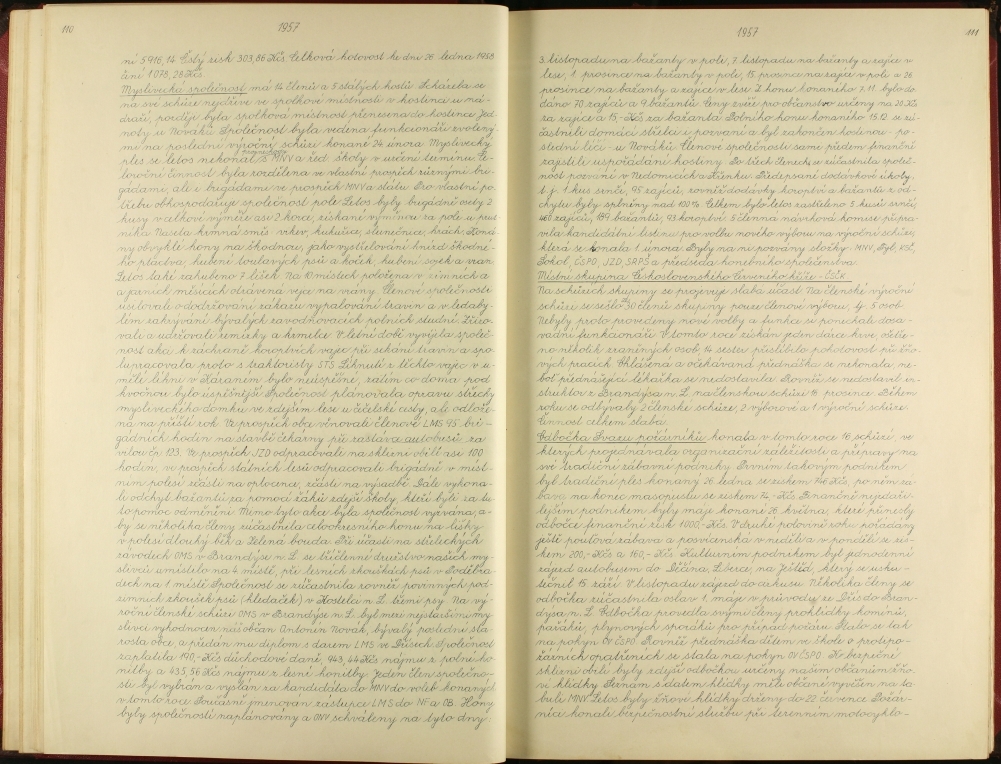 110
1957
ní 5916,14 Čistý zisk 303,86 Kčs Celková hotovost ke dni 26 ledna 1958
činí 1078,28 Kčs
Myslivecká společnost má 14 členů a 5 stálých hostů Scházela se
na své schůze nejdříve ve spolkové místnosti v hostinci u ná-
draží, později byla spolková místnost přenesena do hostince Jed-
noty u Nováků Společnost byla vedena funkcionáři zvolený-
mi na poslední výroční schůzi konané 24 února Myslivecký
ples se letos nekonal, s MNV a řed. školy v určení termínu Ce-
loroční činnost byla rozdělena ve vlastní prospěch různými bri-
gádami, ale i brigádami ve prospěch MNV a státu Pro vlastní po-
třebu obhospodařuje společnost pole Letos byly brigádně osety 2
kusy v celkové výměře asi 2 korce, získaní výměnou za pole u
níka Naseta krmná směs vikev, kukuřice, slunečnice, hrách Koná-
ny obvyklé hony na škodnou, jako vystřelování hnízd škodné-
ho ptactva hubení toulavých psů a koček, hubení sojek a vran
Letos také zahubeno 7 lišek Na 10 místech položena v zimních a
a jarních měsících otrávená vejce na vrány Členové společnosti
usilovali o dodržování zákazu vypalování travin a v
lém zakrývání bývalých zavodňovacích polních studní Zřizo-
vali a udržovali remízky a krmelce V letní době vyvíjela společ-
nost akci k záchraně koroptvích vajec při sekání travin a spo-
lupracovala proto s traktoristy STS Líhnutí z těchto vajec v u-
mělé líhni v Káraném bylo neúspěšné, zatím co doma pod
kvočnou bylo úspěšnější Společnost plánovala opravu střechy
mysliveckého domku ve zdejším lese u čečelské cesty, ale odlože-
na na příští rok Ve prospěch obce věnovali členové LMS 45 bri-
gádních hodin na stavbě čekárny při zastávce autobusů za
vilou čp 123. Ve prospěch JZD odpracovali na sklizni obilí asi 100
hodin, ve prospěch státních lesů odpracovali brigádně v míst-
ním polesí zčásti na oplocence, zčásti na výsadbě Dále vykona-
li odchyt bažantů za pomoci žáků zdejší školy, kteří byli za tu-
to pomoc odměněni Mimo tyto akce byla společnost vyzvána, a-
by se několika členy zúčastnila celookresního honu na lišky
v polesí dlouhý běh a Zelená bouda Při účasti na střeleckých
závodech OMS v Brandýse n L se tříčlenné družstvo našich my-
slivců umístilo na 4 místě, při lesních zkouškách psů v Poděbra-
dech na 1 místě Společnost se zúčastnila rovněž povinných pod-
zimních zkoušek psů (hledaček) v Kostelci n L třemi psy Na vý-
roční členské schůzi OMS v Brandýse n L. byl mezi nejstaršími my-
slivci vyhodnocen náš občan Antonín Novák, bývalý poslední sta-
rosta obce, a předán mu diplom s darem LMS ve Dřísech Společnost
zaplatila 190,- Kčs důchodové daně, 943,44 Kčs nájmu z polní ho-
nitby a 435,56 Kčs nájmu z lesní honitby Jeden člen společno-
sti byl vybrán a vyslán za kandidáta do MNV do voleb konaných
v tomto roce Současně jmenován zástupce LMS do NF a OB. Hony
byly společností naplánovány a ONV schváleny na tyto dny
1957
111
3. listopadu na bažanty v poli, 7. listopadu na bažanty a zajíce v
lese, 1 prosince na bažanty v poli, 15. prosince na zajíce v poli a 26.
prosince na bažanty a zajíce v lese Z honu konaného 7. 11. bylo do-
dáno 70 zajíců a 9 bažantů Ceny zvěře pro občanstvo určeny na 20 Kčs
za zajíce a 15,- Kčs za bažanta Polního honu konaného 15.12. se zú-
častnili domácí střelci a pozvaní a byl zakončen hostinou - po-
slední lečí - u Nováků Členové společnosti sami předem finančně
zajistili uspořádání hostiny Po třech členech se zúčastnila společ-
nost pozvání v Nedomicích a Hlínku. Předepsané dodávkové úkoly,
t.j. 1 kus srnčí, 95 zajíců, rovněž dodávky koroptví a bažantů z od-
chytu byly splněny nad 100% Celkem bylo letos zastřeleno 5 kusů srnčí,
zajíců, 189 bažantů, 93 koroptví 3 členná návrhová komise připra-
vila kandidátní listinu pro volbu nového výboru na výroční schůzi,
která se konala 1 února Byly na ni pozvány složky: MNV, KSČ,
Sokol, ČSPO, JZD, SRPŠ a předseda honebního společenstva.
Místní skupina Československého červeného kříže - ČSČK
Na schůzích skupiny se projevuje slabá účast. Na členské výroční
schůzi se sešlo z 30 členů skupiny pouze členové výboru, tj 5 osob
Nebyly proto provedeny nové volby a funkce si ponechali dosa-
vadní funkcionáři V tomto roce získán jeden dárce krve, ošetře-
no několik zraněných osob, 14 sester přislíbilo pohotovost při žňo-
vých pracích Ohlášená a očekávaná přednáška se nekonala, ne-
boť přednášející lékařka se nedostavila. Rovněž se nedostavil in-
struktor z Brandýsa n. L. na členskou schůzi 18 prosince. Během
roku se odbývaly 2 členské schůze, 2 výborové a 1 výroční schůze.
Činnost celkem slabá.
Odbočka Svazu požárníků konala v tomto roce 16 schůzí, ve
kterých projednávala organizační záležitosti a přípravy na
své tradiční zábavné podniky Prvním takovým podnikem
byl tradiční ples konaný 26 ledna se ziskem 746 Kčs, po něm zá-
bava na konec masopustu se ziskem 74,- Kčs Finančně nejzdaři-
lejším podnikem byly máje konané 26 května, které přinesly
odbočce finanční zisk 1000,- Kčs V druhé polovině roku pořádány
ještě pouťová zábava a posvícenská v neděli a v pondělí se zis-
kem 200,- Kčs a 160,- Kčs Kulturním podnikem byl jednodenní
zájezd autobusem do Děčína, Liberce, na Ještěd, který se usku-
tečnil 15 září V listopadu zájezd do cirkusu. Několika členy se
odbočka zúčastnila oslav 1 máje v průvodu ze Dřís do Bran-
dýsa n. L Odbočka provedla svými členy prohlídky komínů,
pařáků, plynových sporáků pro případ požáru Stalo se tak
na pokyn OV ČSPO Rovněž přednáška dětem ve škole o protipo-
žárních opatřeních se stala na pokyn OV ČSPO K bezpečné
sklizni obilí byly zdejší odbočkou určeny našim občanům žňo-
vé hlídky Seznam s datem hlídky měli občané vyvěšen na ta-
buli MNV Letos byly žňové hlídky drženy do 22 července Požár-
níci konali bezpečnostní službu při terenním motocyklo-